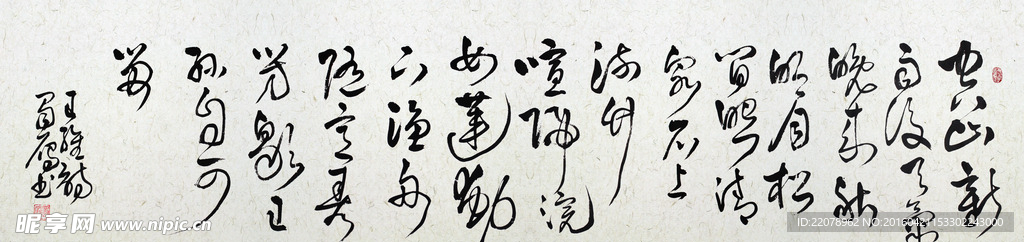 空山新
雨後天氣
晚来秋
明月松
間照清
泉石上
流竹
喧歸浣
女蓮動
下漁舟
随意春
芳歇王
孫自可
留
王維詩
昵享网 www.nipic.cn
ID:22078962 NO:20160421153302243000